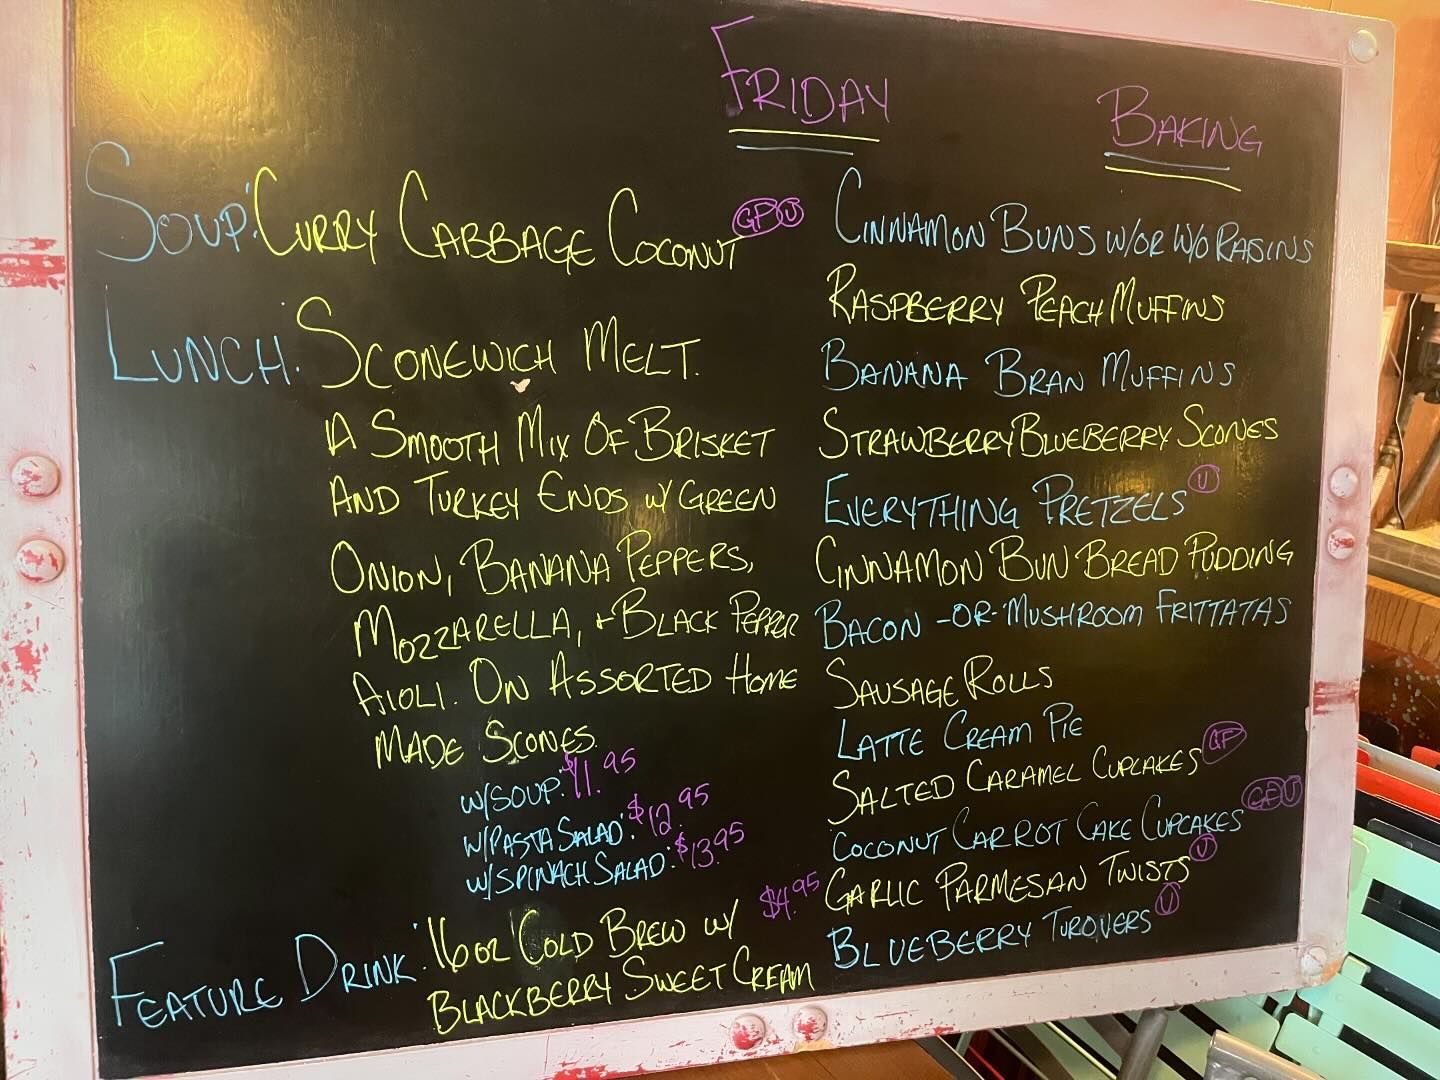 FRIDAY
SOUP: CURRY CABBAGE COCONUT GF V
LUNCH: SCONEWICH MELT.
A SMOOTH MIX OF BRISKET
AND TURKEY ENDS W/ GREEN
ONION, BANANA PEPPERS,
MOZZARELLA, + BLACK PEPPER
AIOLI. ON ASSORTED HOME
MADE SCONES.
W/SOUP: $11.95
W/PASTA SALAD: $12.95
W/SPINACH SALAD: $13.95
FEATURE DRINK: 16oz COLD BREW W/ $4.95
BLACKBERRY SWEET CREAM
BAKING
CINNAMON BUNS W/OR W/O RAISINS
RASPBERRY PEACH MUFFINS
BANANA BRAN MUFFINS
STRAWBERRY BLUEBERRY SCONES
EVERYTHING PRETZELS V
CINNAMON BUN BREAD PUDDING
BACON -OR- MUSHROOM FRITTATAS
SAUSAGE ROLLS
LATTE CREAM PIE
SALTED CARAMEL CUPCAKES GF
COCONUT CARROT CAKE CUPCAKES GF V
GARLIC PARMESAN TWISTS V
BLUEBERRY TUROVERS V